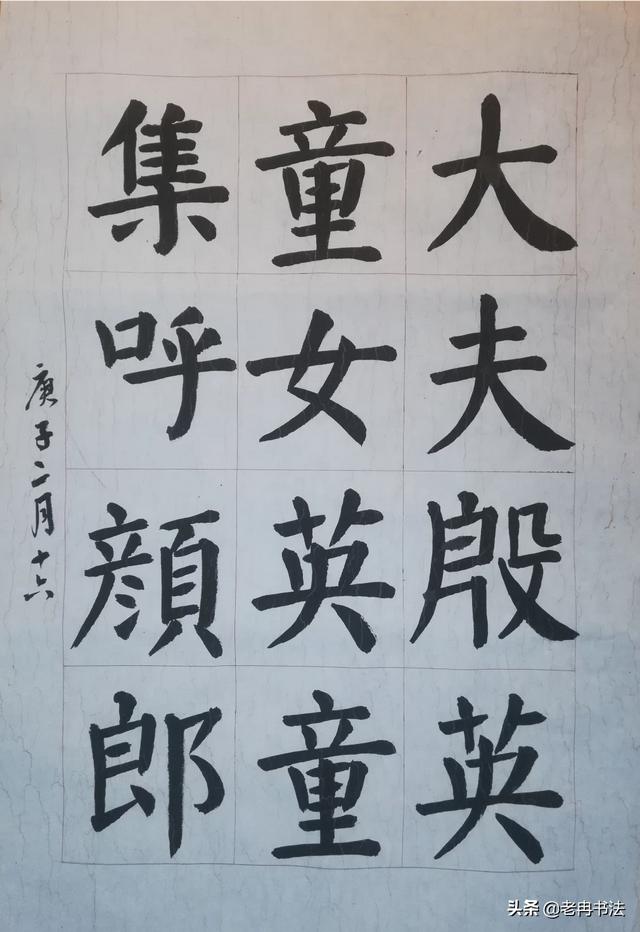 大夫殷英
童女英童
集呼顔郎
庚子二月十六
头条 @老冉书法